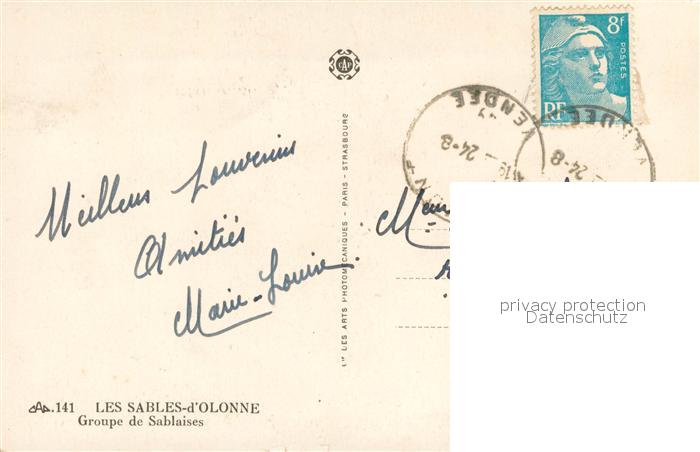 8f
POSTES
RF
VENDÉE
24-8
VENDÉE
24-8
Meilleurs Souvenirs
Amitiés
Marie-Louise.
CIE LES ARTS PHOTOMÉCANIQUES - PARIS - STRASBOURG
CAP.141 LES SABLES-d'OLONNE
Groupe de Sablaises
privacy protection
Datenschutz